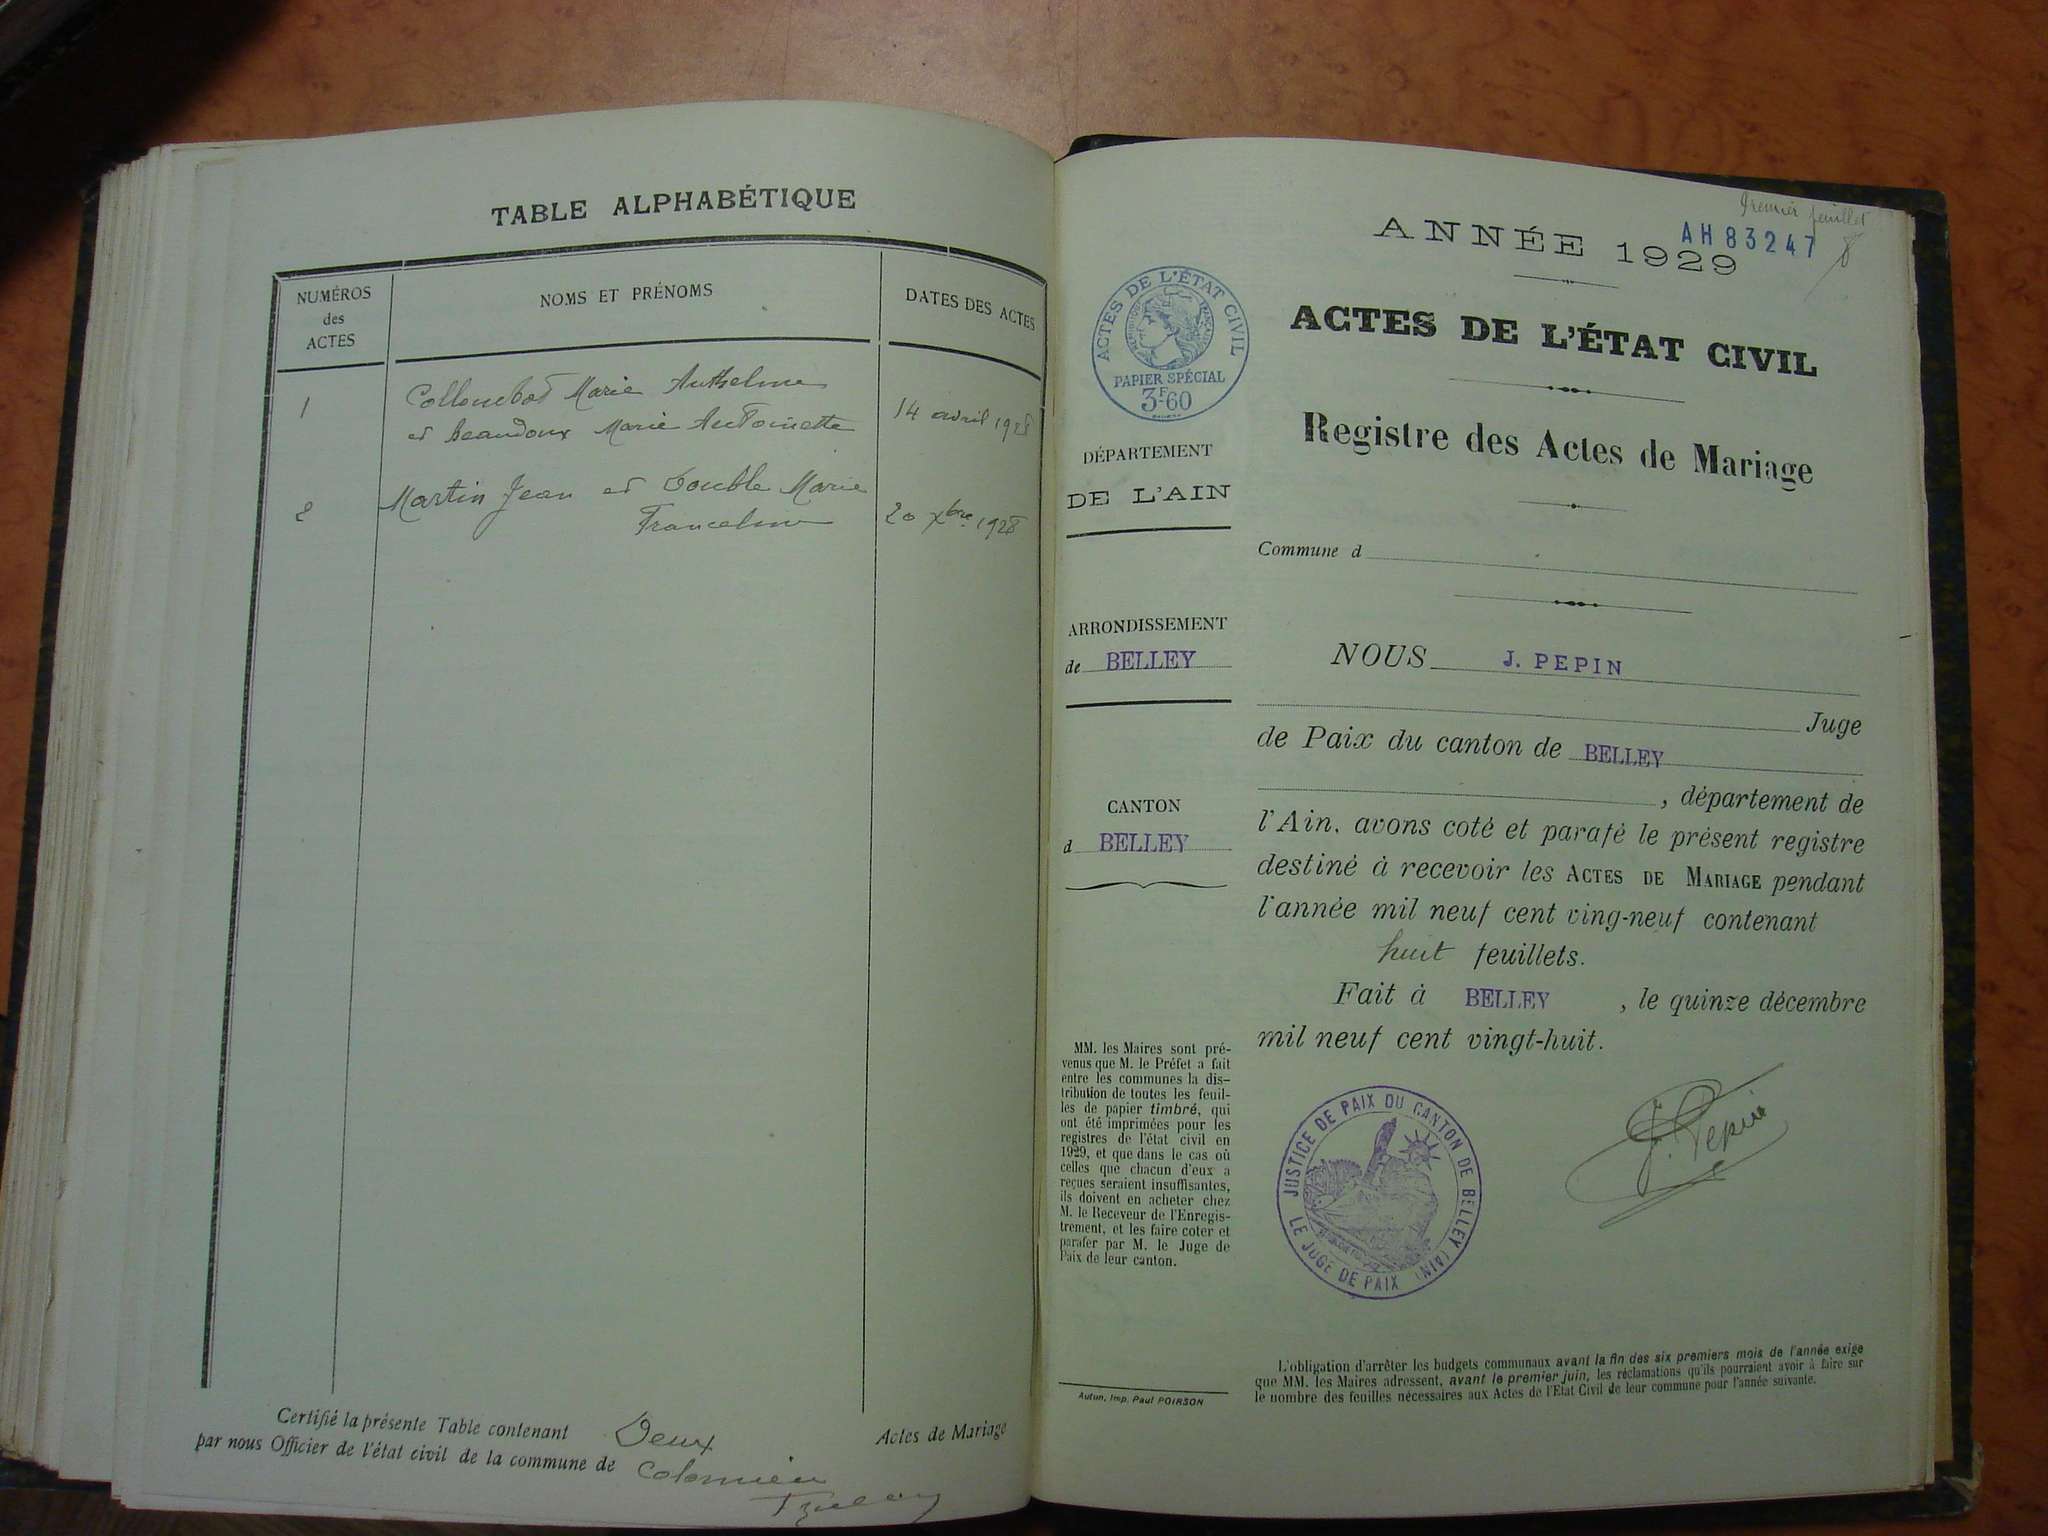 TABLE ALPHABÉTIQUE
NUMÉROS
des
ACTES
NOMS ET PRÉNOMS
DATES DES ACTES
1
Marie Anthelme
et Beaudoux Marie Antoinette
14 avril 1928
2
Martin Jean et Double Marie
20 xbre 1928
Certifié la présente Table contenant Deux Actes de Mariage
par nous Officier de l'état civil de la commune de Colomieu
Premier feuillet
AH83247
8
ANNÉE 1929
ACTES DE L'ÉTAT CIVIL
Registre des Actes de Mariage
ACTES DE L'ÉTAT CIVIL
RÉPUBLIQUE FRANÇAISE
PAPIER SPÉCIAL
3F60
DÉPARTEMENT
DE L'AIN
ARRONDISSEMENT
de BELLEY
CANTON
d BELLEY
MM. les Maires sont pré-
venus que M. le Préfet a fait
entre les communes la dis-
tribution de toutes les feuil-
les de papier timbré, qui
ont été imprimées pour les
registres de l'état civil en
1929, et que dans le cas où
celles que chacun d'eux a
reçues seraient insuffisantes,
ils doivent en acheter chez
M. le Receveur de l'Enregis-
trement, et les faire coter et
parafer par M. le Juge de
Paix de leur canton.
Autun, Imp. Paul POIRSON
Commune d
NOUS J. PEPIN
Juge
de Paix du canton de BELLEY
, département de
l'Ain, avons coté et parafé le présent registre
destiné à recevoir les ACTES DE MARIAGE pendant
l'année mil neuf cent ving-neuf contenant
huit feuillets.
Fait à BELLEY , le quinze décembre
mil neuf cent vingt-huit.
JUSTICE DE PAIX DU CANTON DE BELLEY (AIN)
LE JUGE DE PAIX
J. Pepin
L'obligation d'arrêter les budgets communaux avant la fin des six premiers mois de l'année exige
que MM. les Maires adressent, avant le premier juin, les réclamations qu'ils pourraient avoir à faire sur
le nombre des feuilles nécessaires aux Actes de l'Etat Civil de leur commune pour l'année suivante.